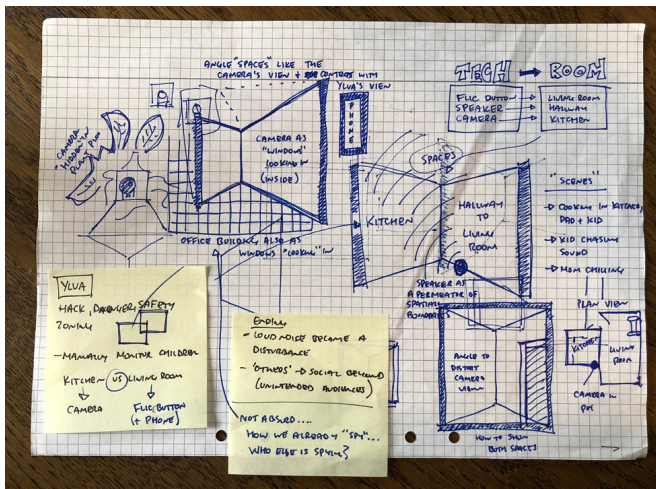 ANGLE "SPACES" LIKE THE
CAMERA'S VIEW + CONTRAST WITH
YLVA'S VIEW
TECH → ROOM
FLIC BUTTON → LIVING ROOM
SPEAKER → HALLWAY
CAMERA → KITCHEN
PHONE
"CAMERA
HIDDEN IN
PLAIN
CAMERA AS
"WINDOWS"
LOOKING IN
(INSIDE)
SPACES
KITCHEN
HALLWAY
TO
LIVING
ROOM
"SCENES"
→ COOKING IN KITCHEN,
DAD + KID
→ KID CHASING
SOUND
→ MOM CHILLING
OFFICE BUILDING ALSO AS
WINDOWS "LOOKING" IN
SPEAKER AS
A PERMEATOR OF
SPATIAL
BOUNDARIES
PLAN VIEW
KITCHEN
LIVING
ROOM
CAMERA IN
POS
ANGLE TO
DISTORT CAMERA
VIEW
HOW TO SHOW
BOTH SPACES
YLVA
HACK, DANGER, SAFETY
ZONING
- MANUALLY MONITOR CHILDREN
KITCHEN VS LIVING ROOM
CAMERA
FLIC BUTTON
(+ PHONE)
ENDING
- LOUD NOISE BECAME A
DISTURBANCE
- 'OTHERS' → SOCIAL BEYOND
(UNINTENDED AUDIENCES)
NOT ABSURD....
HOW WE ALREADY "SPY"...
WHO ELSE IS SPYING?